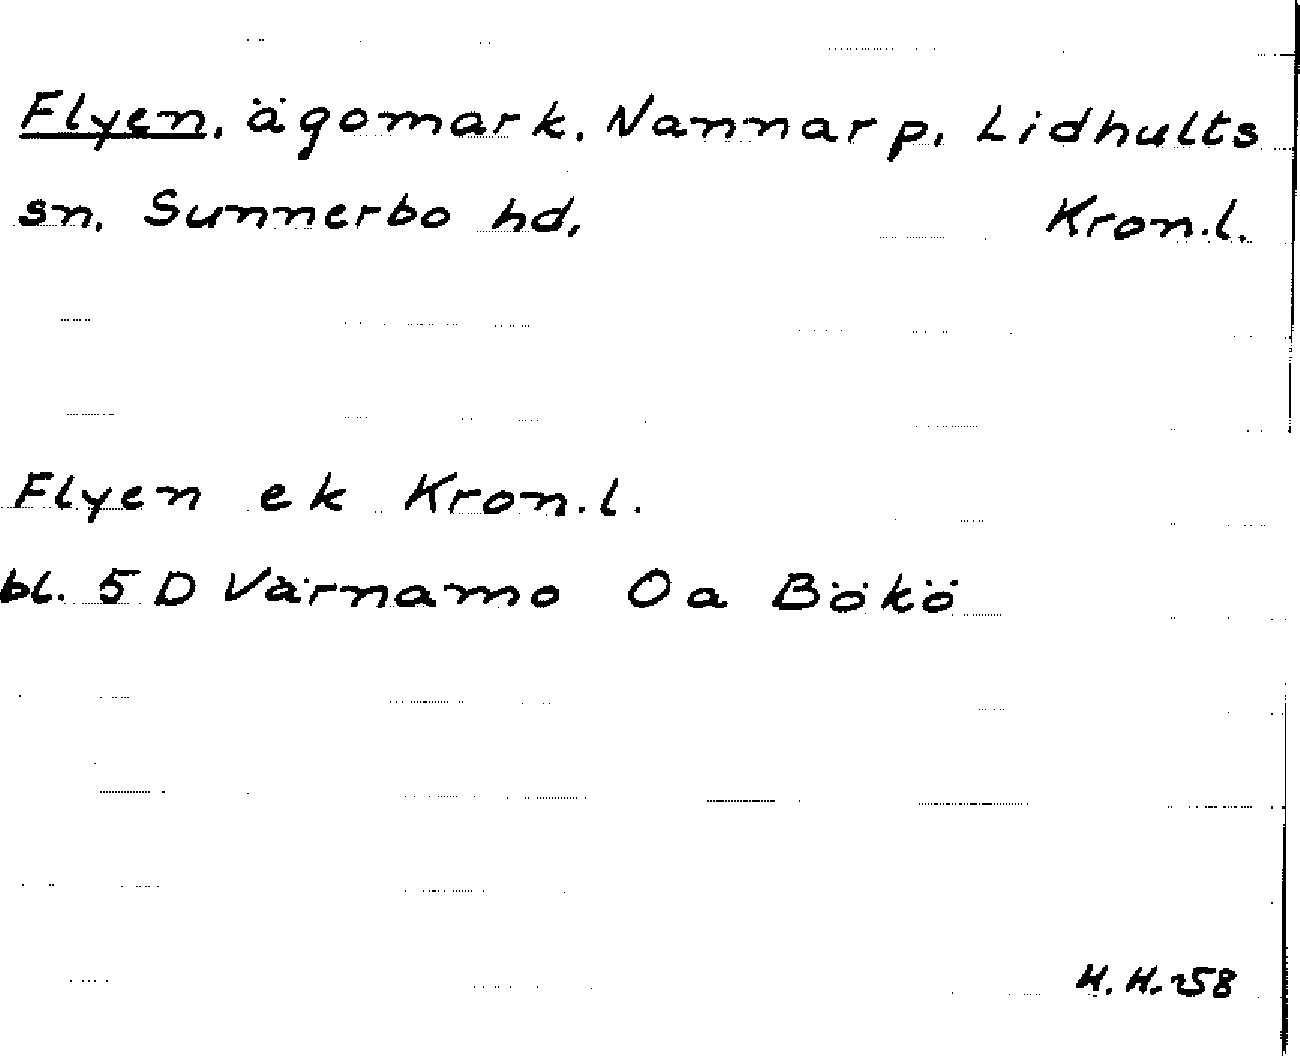 Flyen, ägomark, Nannarp, Lidhults
sn, Sunnerbo hd, Kron.l.
Flyen ek Kron.l.
bl. 5 D Värnamo 0a Bökö
H.H. 58